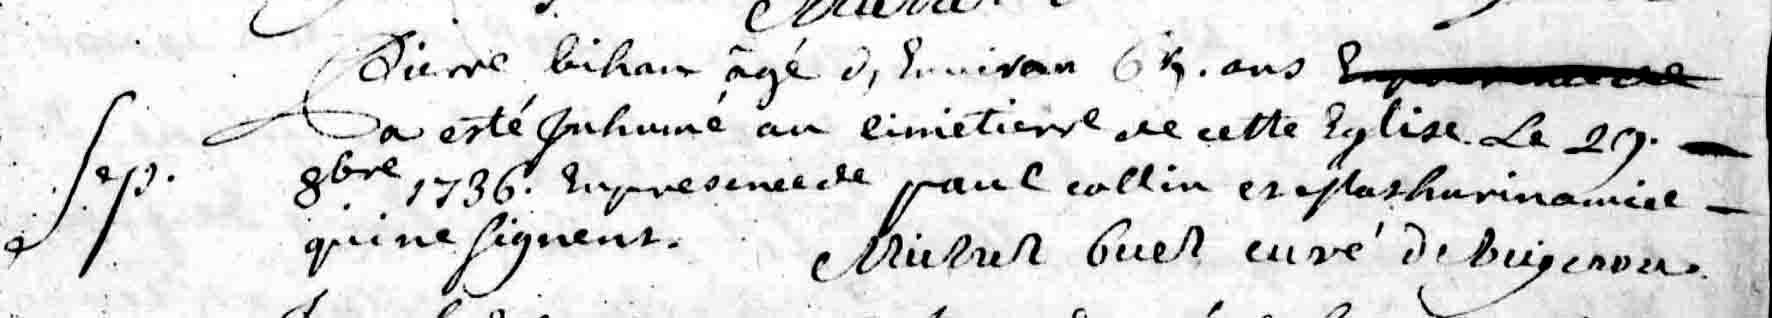 Pierre bihan agé d, Environ 69. ans
a esté Inhumé au cimetierre de cette Eglise. Le 29.
Sep. 8bre 1736. En presence de paul collin et Mathurin amice
qui ne signent. Michel buet curé de